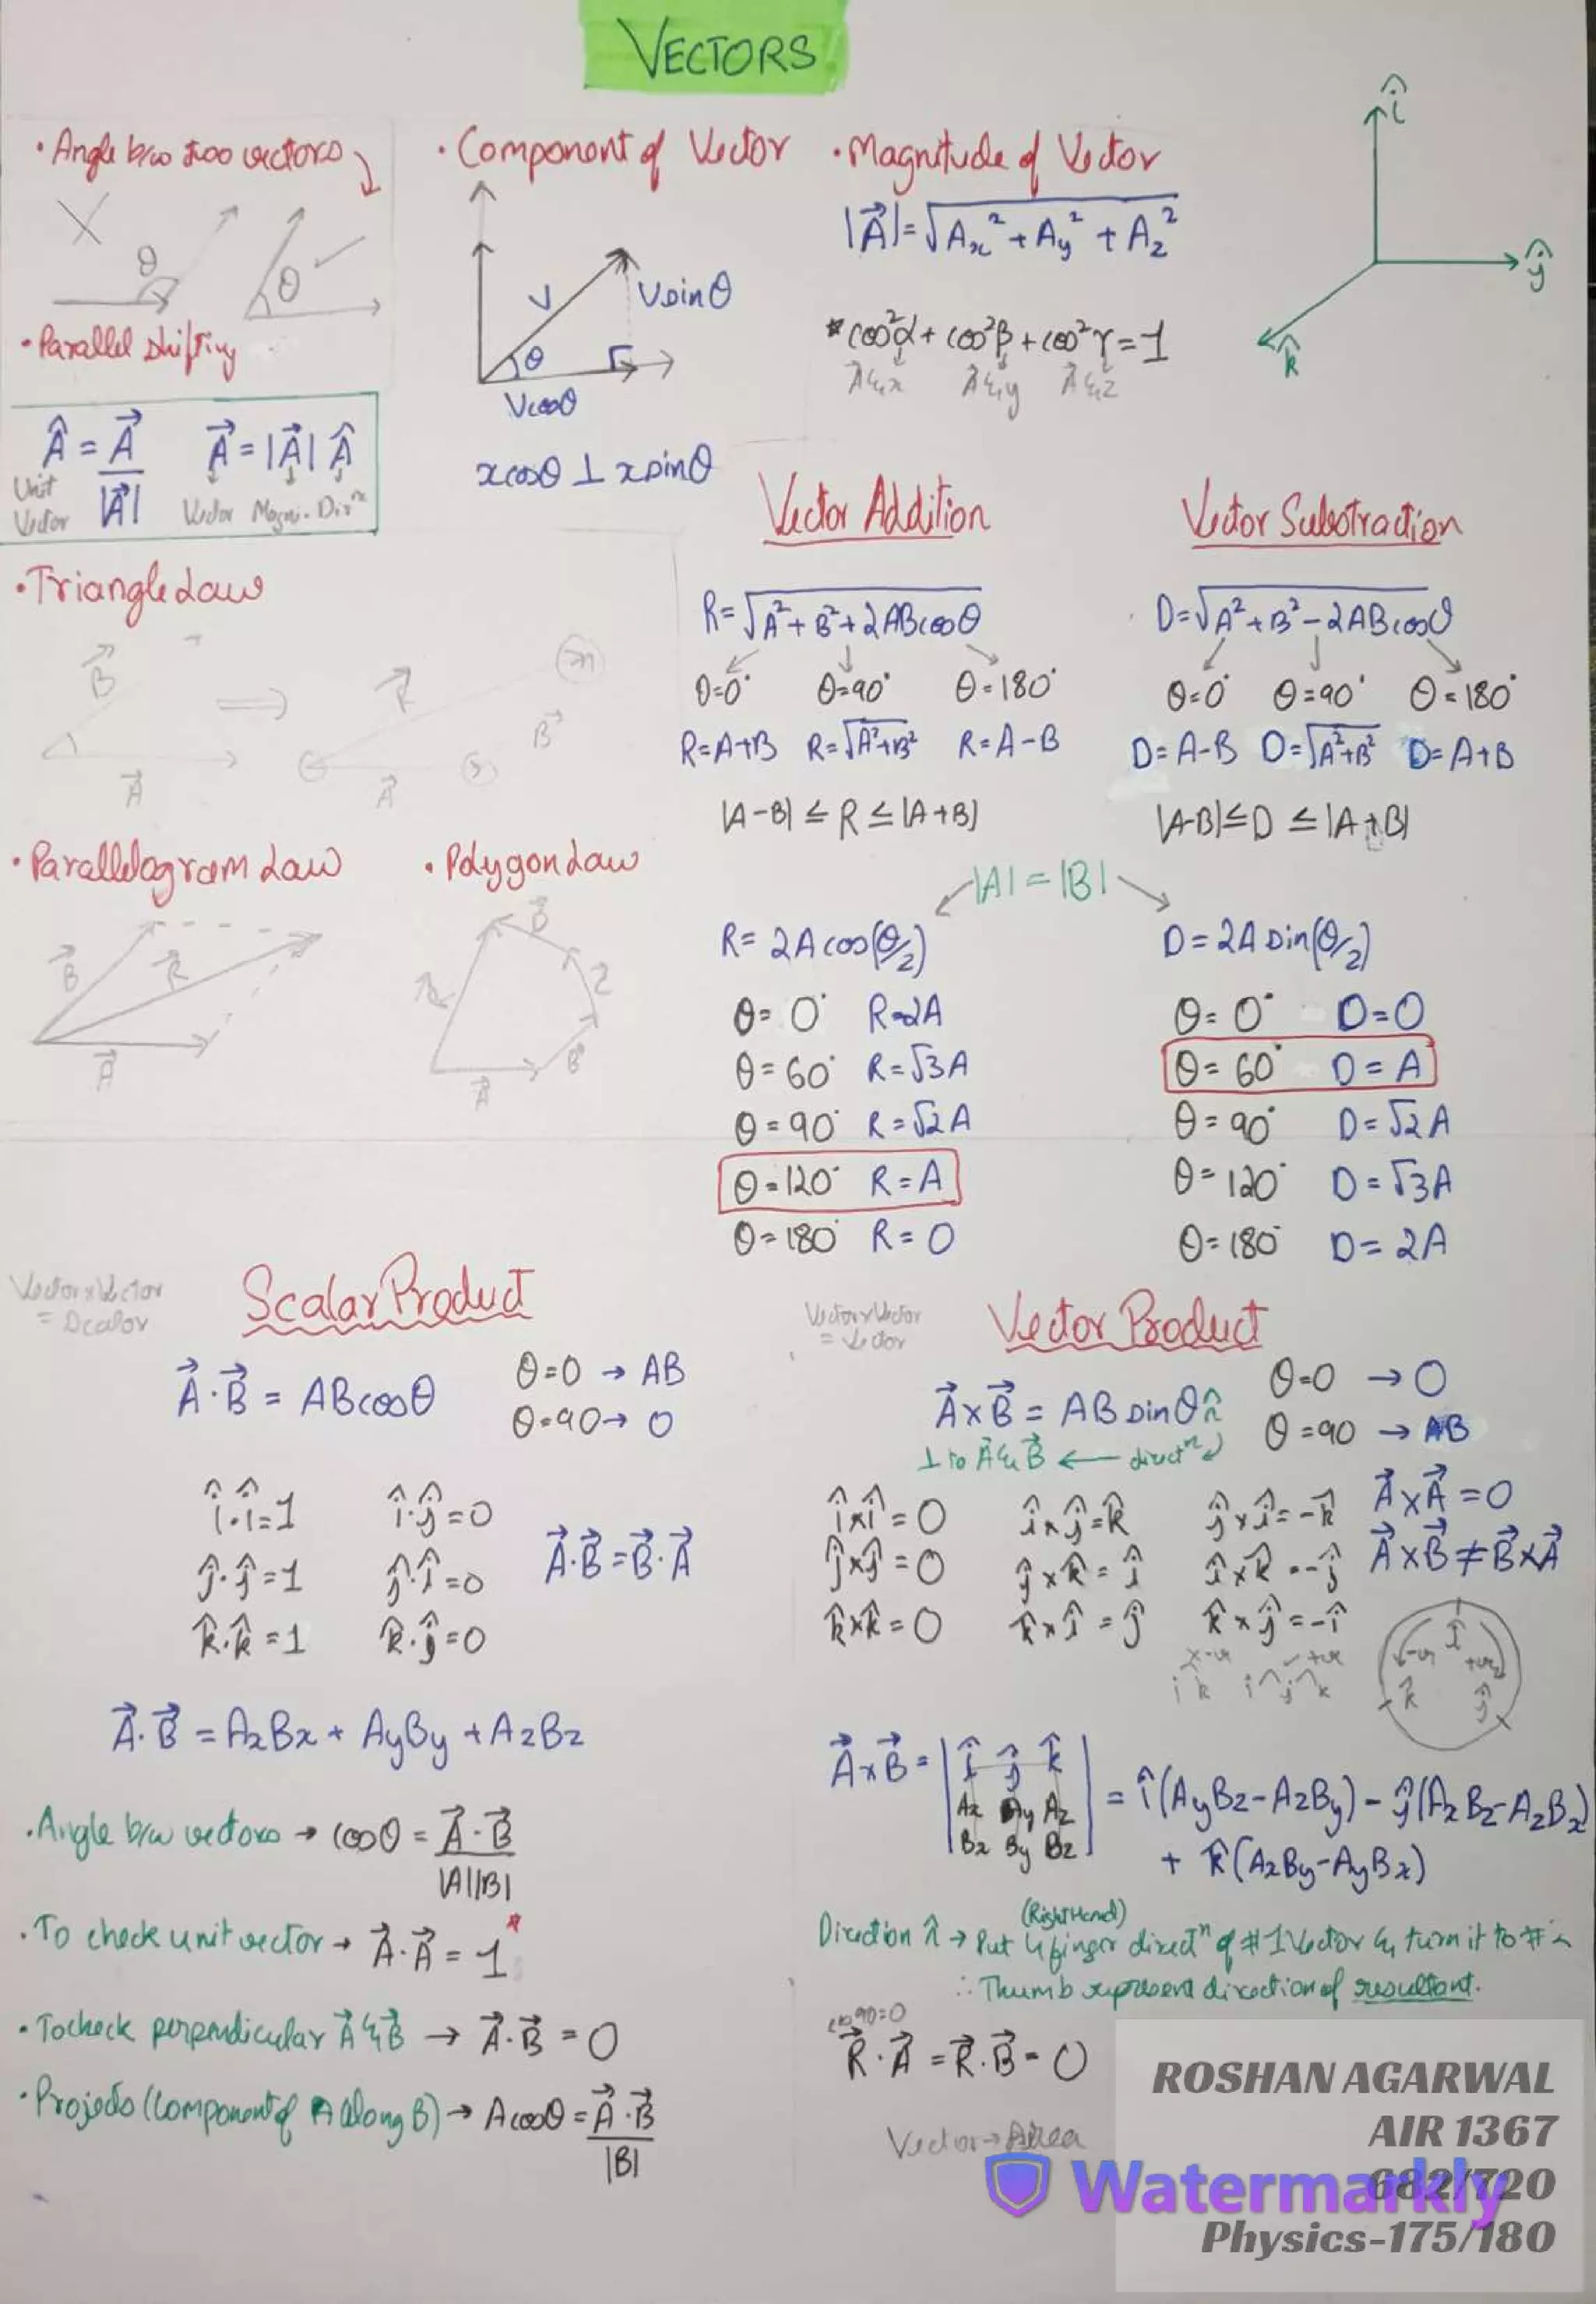 VECTORS
• Angle b/w two vectors
θ
θ
• Parallel shifting
Â = A⃗ / |A⃗|
A⃗ = |A⃗| Â
Unit Vector
Vector Magni. Dirⁿ
• Component of Vector
V
V sinθ
θ
V cosθ
x cosθ ⊥ x sinθ
• Magnitude of Vector
|A⃗| = √(Ax² + Ay² + Az²)
* cos²α + cos²β + cos²γ = 1
A⃗ & x A⃗ & y A⃗ & z
î
ŷ
k̂
• Triangle Law
B⃗
A⃗
R⃗
B⃗
A⃗
• Parallelogram Law
B⃗
R⃗
A⃗
• Polygon Law
R⃗
A⃗
B⃗
Vector Addition
R = √(A² + B² + 2AB cosθ)
θ=0° θ=90° θ=180°
R=A+B R=√(A²+B²) R=A-B
|A-B| ≤ R ≤ |A+B|
Vector Substraction
D = √(A² + B² - 2AB cosθ)
θ=0° θ=90° θ=180°
D=A-B D=√(A²+B²) D=A+B
|A-B| ≤ D ≤ |A+B|
|A| = |B|
R = 2A cos(θ/2)
θ = 0° R=2A
θ = 60° R=√3A
θ = 90° R=√2A
θ = 120° R=A
θ = 180° R=0
D = 2A sin(θ/2)
θ = 0° D=0
θ = 60° D=A
θ = 90° D=√2A
θ = 120° D=√3A
θ = 180° D=2A
Vector x Vector
= Scalar
Scalar Product
A⃗·B⃗ = AB cosθ
θ=0 → AB
θ=90 → 0
î·î=1 î·ĵ=0
ĵ·ĵ=1 ĵ·î=0
k̂·k̂=1 k̂·ĵ=0
A⃗·B⃗ = B⃗·A⃗
A⃗·B⃗ = AxBx + AyBy + AzBz
• Angle b/w vectors → cosθ = A⃗·B⃗ / |A||B|
• To check unit vector → A⃗·A⃗ = 1*
• To check perpendicular A⃗ & B⃗ → A⃗·B⃗ = 0
• Projects (Component of A along B) → A cosθ = A⃗·B⃗ / |B|
Vector x Vector
= Vector
Vector Product
A⃗ x B⃗ = AB sinθ n̂
⊥ to A⃗ & B⃗ ← directⁿ
θ=0 → 0
θ=90 → AB
î x î = 0 î x ĵ = k̂ ĵ x î = -k̂
ĵ x ĵ = 0 ĵ x k̂ = î î x k̂ = -ĵ
k̂ x k̂ = 0 k̂ x î = ĵ k̂ x ĵ = -î
A⃗ x A⃗ = 0
A⃗ x B⃗ ≠ B⃗ x A⃗
x -ve ✓ +ve
i k i j k
î
-ve +ve
k̂ ĵ
A⃗ x B⃗ = | î ĵ k̂ |
Ax Ay Az
Bx By Bz
= î(AyBz - AzBy) - ĵ(AxBz - AzBx)
+ k̂(AxBy - AyBx)
(Right Hand)
Direction n̂ → Put 4 finger directⁿ of #1 Vector & turn it to #2
∴ Thumb represent direction of resultant.
cos 90=0
R⃗·A⃗ = R⃗·B⃗ = 0
Vector → Area
ROSHAN AGARWAL
AIR 1367
682/720
Physics-175/180
Watermarkly